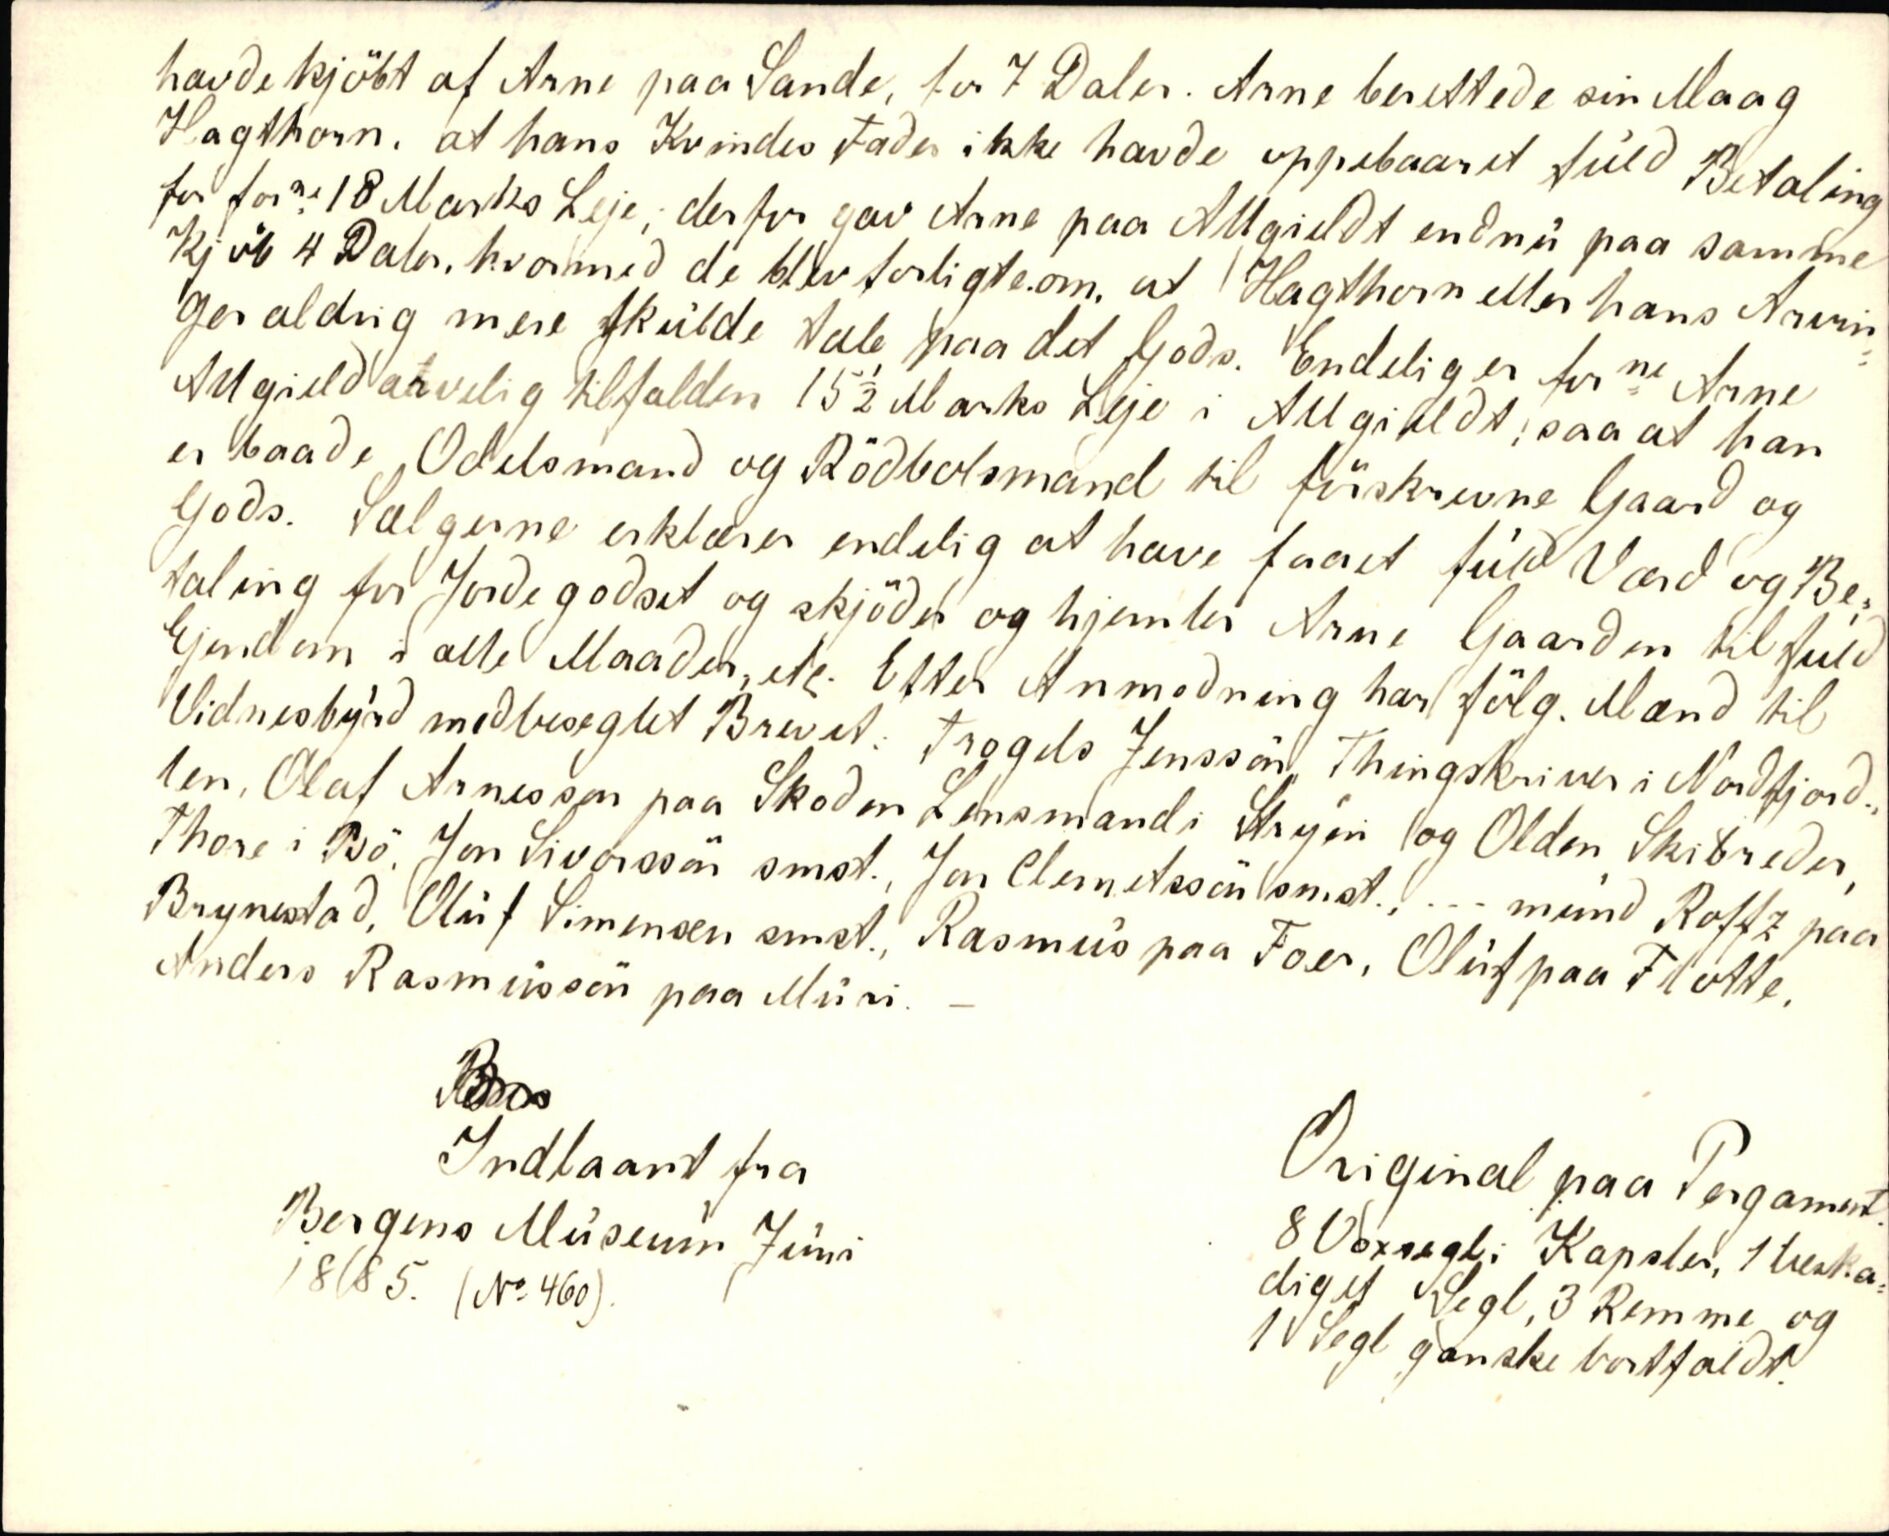 havde kjöbt af Arne paa Sande, for 7 Daler. Arne berettede sin Maag
Hagthorn, at hans Kvindes Fader ikke havde oppebaaret fuld Betaling
for forne 18 Marks Leje; derfor gav Arne paa Allgieldt endnu paa samme
Kjöb 4 Daler, hvormed de blev forligte om, at Hagthorn eller hans Arvin=
ger aldrig mere skulde tale paa det Gods. Endelig er forne Arne
Allgield arvelig tilfalden 15½ Marks Leje i Allgieldt; saa at han
er baade Odelsmand og Rödbolsmand til förskrevne Gaard og
Gods. Sælgerne erklærer endelig at have faaet fuld Værd og Be=
taling for Jordegodset og skjöder og hjemler Arne Gaarden til fuld
Ejendom i alle Maader, etc. Efter Anmodning har fölg. Mænd til
Vidnesbyrd medbeseglet Brevet: Trogels Jenssön, Thingskriver i Nordfjord-
len, Olaf Arnesson paa Skoden Lensmand i Stryen og Olden Skibreder,
Thore i Bö, Jon Sivorssön smst., Jon Clemetssön smst., --- mund Roffz paa
Brynestad, Oluf Simensen smst., Rasmus paa Foer, Oluf paa Flotte,
Anders Rasmussön paa Muri. —
Indlaant fra
Bergens Museum Juni
1885. (No 460).
Original paa Pergament.
8 Voxsegl i Kapsler, 1 beska=
diget Segl, 3 Remme og
1 Segl ganske bortfaldt.